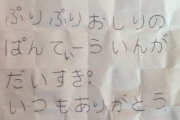 ぷりぷりおしりの
ぱんてぃーういんが
だいすき。
いつもありがとう